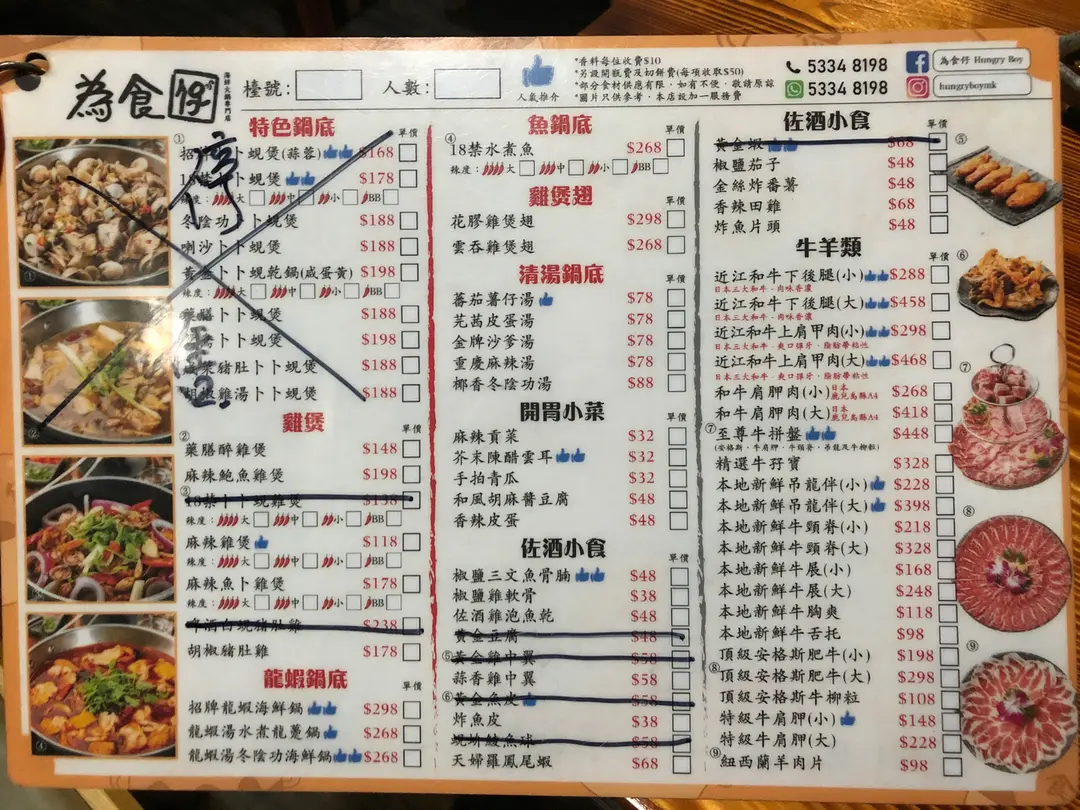 為食仔
海鮮火鍋專門店
檯號：
人數：
人氣推介
*香料每位收費$10
*另設開瓶費及切餅費(每項收取$50)
*部分食材供應有限，如有不便，敬請原諒
*圖片只供參考，本店設加一服務費
5334 8198
5334 8198
為食仔 Hungry Boy
hungryboymk
特色鍋底
單價
①
卜蜆煲(蒜蓉) $168
卜蜆煲 $178
辣度： 大 中 小 BB
冬陰功卜卜蜆煲 $188
喇沙卜卜蜆煲 $188
黃金卜卜蜆乾鍋(咸蛋黃) $198
辣度： 大 中 小 BB
藥膳卜卜蜆煲 $188
卜卜蜆煲 $198
菜豬肚卜卜蜆煲 $188
胡椒雞湯卜卜蜆煲 $188
停
雞煲
單價
②
藥膳醉雞煲 $148
麻辣鮑魚雞煲 $198
③
18禁卜卜蜆雞煲 $138
辣度： 大 中 小 BB
麻辣雞煲 $118
辣度： 大 中 小 BB
麻辣魚卜雞煲 $178
辣度： 大 中 小 BB
酒白蜆豬肚雞 $238
胡椒豬肚雞 $178
龍蝦鍋底
單價
招牌龍蝦海鮮鍋 $298
龍蝦湯水煮龍躉鍋 $268
龍蝦湯冬陰功海鮮鍋 $268
魚鍋底
單價
④
18禁水煮魚 $268
辣度： 大 中 小 BB
雞煲翅
單價
花膠雞煲翅 $298
雲吞雞煲翅 $268
清湯鍋底
單價
蕃茄薯仔湯 $78
芫茜皮蛋湯 $78
金牌沙爹湯 $78
重慶麻辣湯 $78
椰香冬陰功湯 $88
開胃小菜
單價
麻辣貢菜 $32
芥末陳醋雲耳 $32
手拍青瓜 $32
和風胡麻醬豆腐 $48
香辣皮蛋 $48
佐酒小食
單價
椒鹽三文魚骨腩 $48
椒鹽雞軟骨 $38
佐酒雞泡魚乾 $48
黃金豆腐 $48
⑤黃金雞中翼 $58
蒜香雞中翼 $58
⑥黃金魚皮 $58
炸魚皮 $38
鯪魚球 $58
天婦羅鳳尾蝦 $68
佐酒小食
單價
黃金蝦 $68
椒鹽茄子 $48
金絲炸番薯 $48
香辣田雞 $68
炸魚片頭 $48
牛羊類
單價
近江和牛下後腿(小) $288
日本三大和牛，肉味香濃
近江和牛下後腿(大) $458
日本三大和牛，肉味香濃
近江和牛上肩甲肉(小) $298
日本三大和牛，爽口彈牙，脂肪帶粘性
近江和牛上肩甲肉(大) $468
日本三大和牛，爽口彈牙，脂肪帶粘性
和牛肩胛肉(小)日本鹿兒島縣A4 $268
和牛肩胛肉(大)日本鹿兒島縣A4 $418
⑦至尊牛拼盤 $448
(安格斯，牛肩胛，牛頸脊，吊龍及牛柳粒)
精選牛孖寶 $328
本地新鮮吊龍伴(小) $228
本地新鮮吊龍伴(大) $398
本地新鮮牛頸脊(小) $218
本地新鮮牛頸脊(大) $328
本地新鮮牛展(小) $168
本地新鮮牛展(大) $248
本地新鮮牛胸爽 $118
本地新鮮牛舌托 $98
頂級安格斯肥牛(小) $198
⑧頂級安格斯肥牛(大) $298
頂級安格斯牛柳粒 $108
特級牛肩胛(小) $148
特級牛肩胛(大) $228
⑨紐西蘭羊肉片 $98
①
②
③
④
⑤
⑥
⑦
⑧
⑨